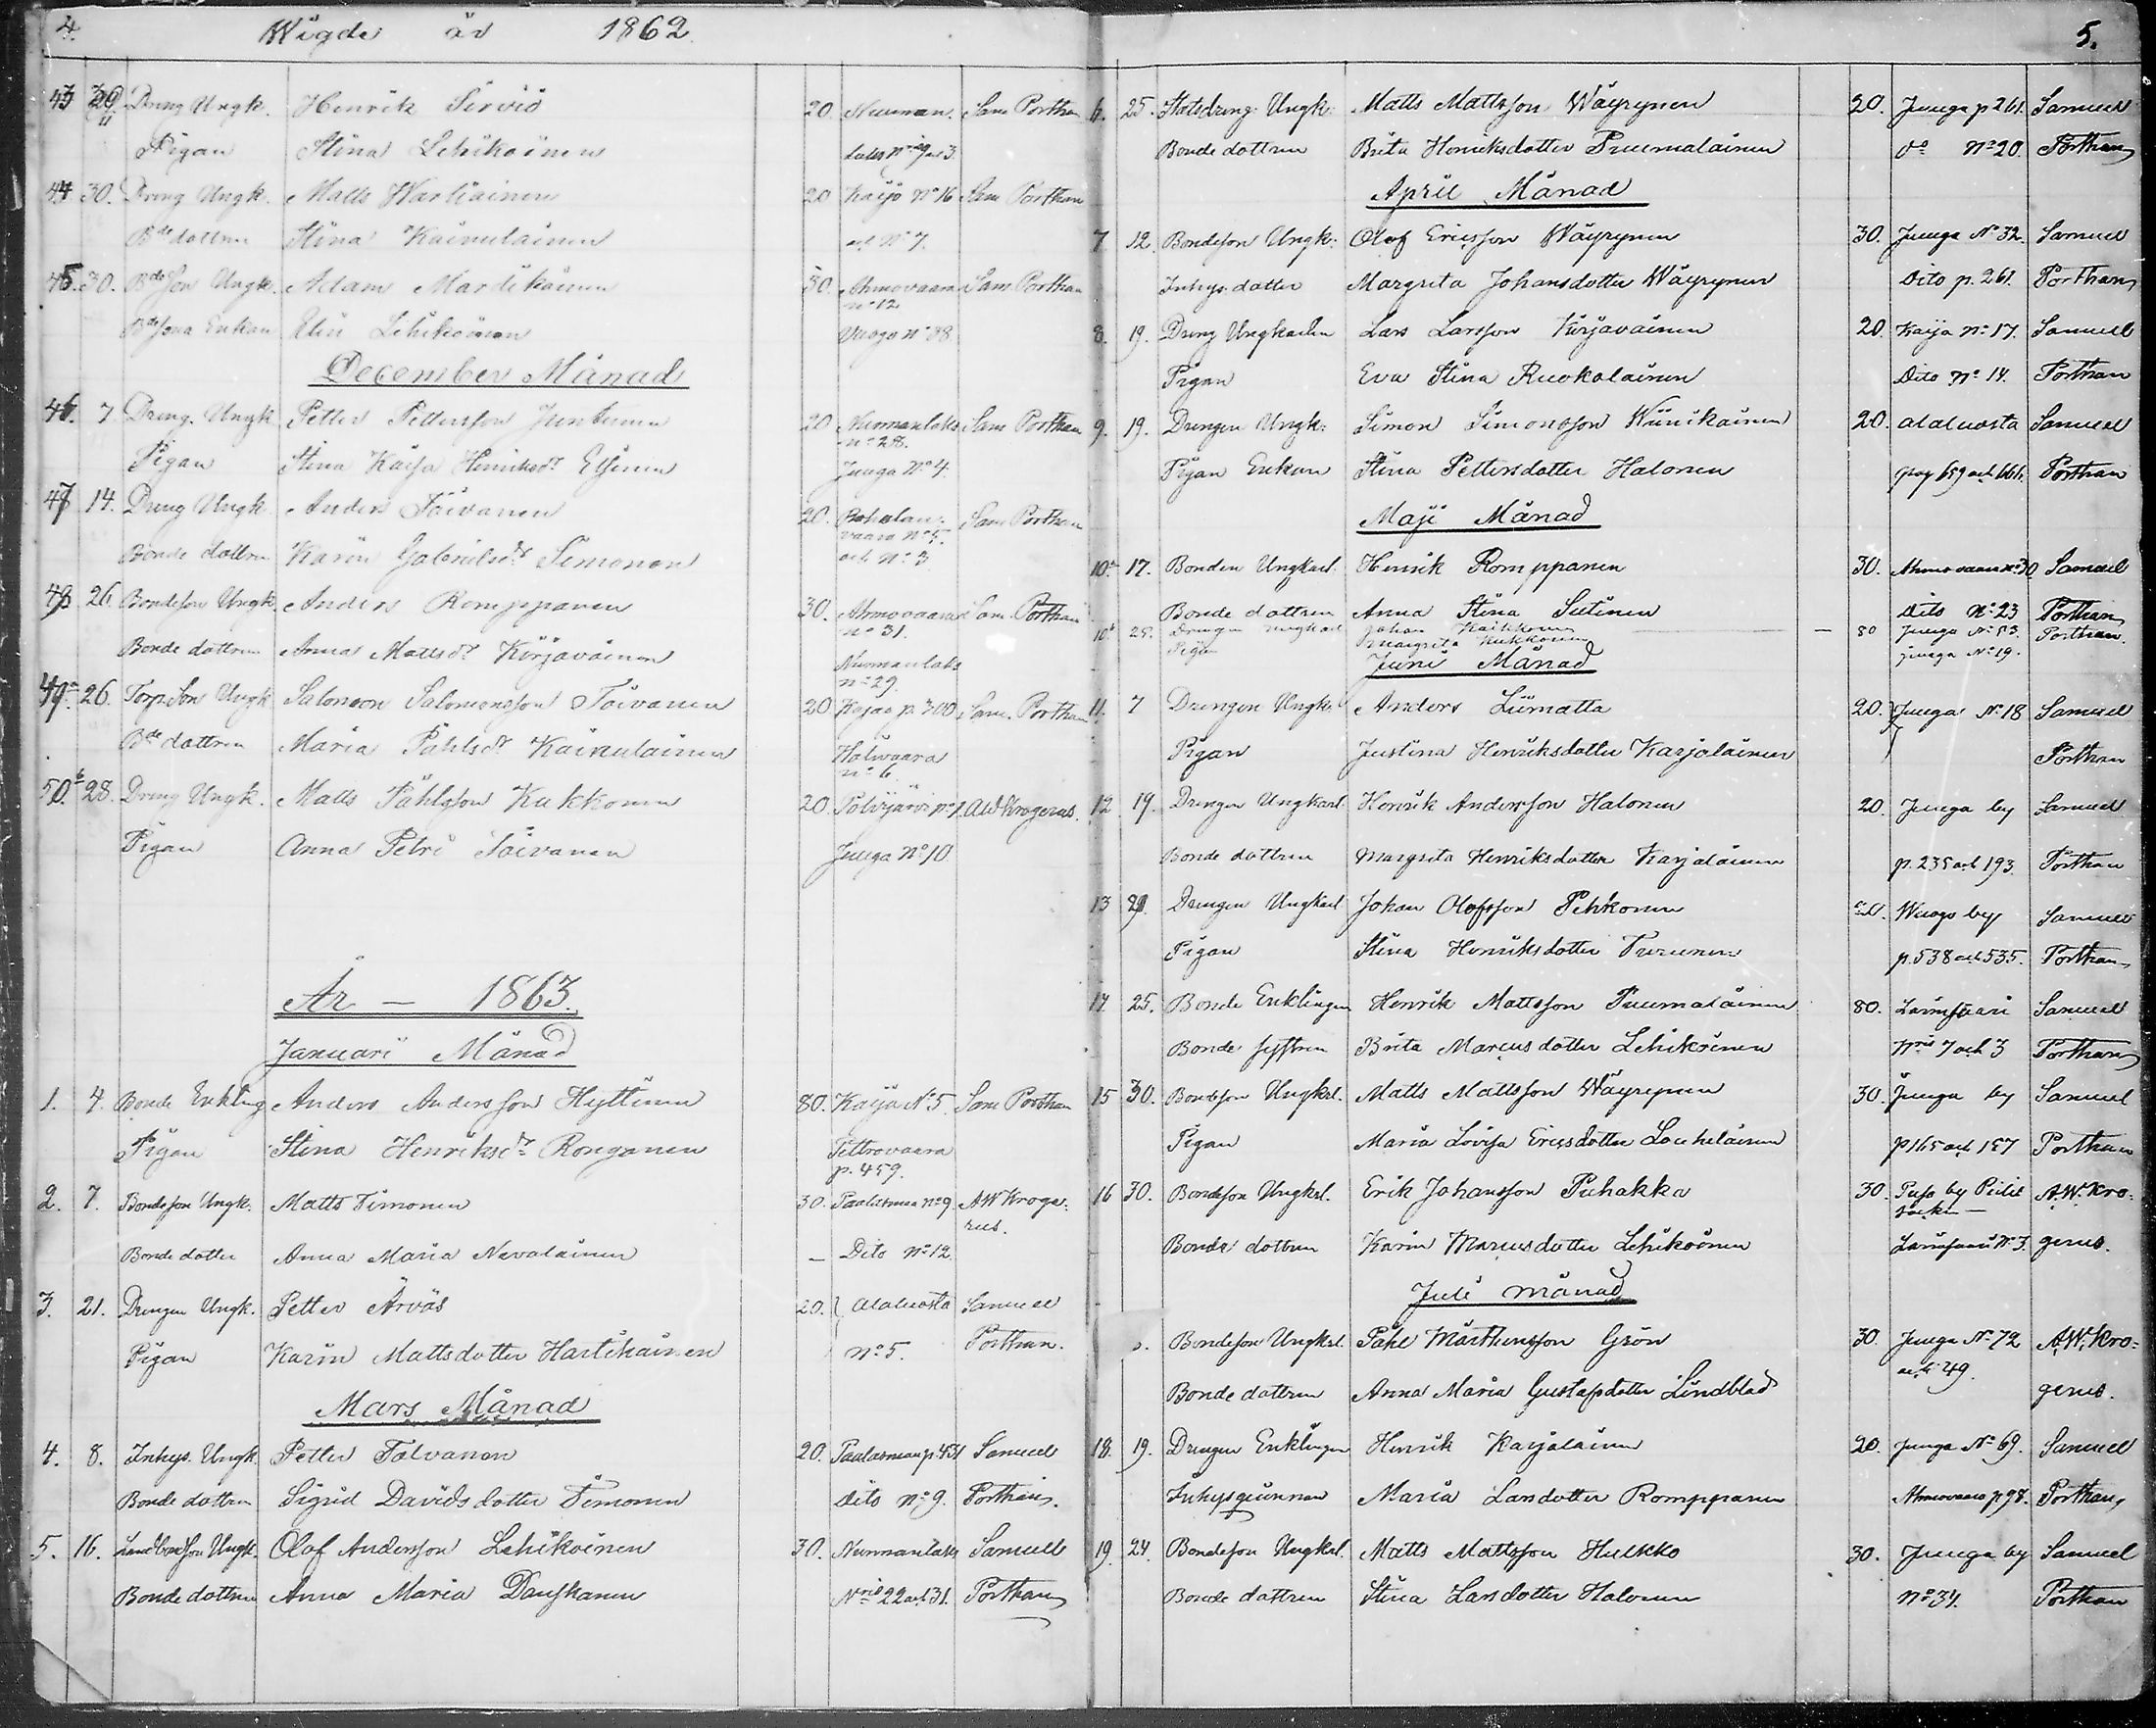 4.
Wigde år 1862
43 30. Dreng Ungk. Henrik Sirviö 20 Nurman. Sam Porthan
Pigan Stina Lehikoinen
44 30. Dreng Ungk. Matts Wartiainen 20 Kaijo No 16 Sam Porthan
Bde dottren Stina Kainulainen och No 7.
45. 30. Bde Son Ungk. Adam Martikainen 30. Ahmovaara Sam Porthan
No 12
Elin Lehikoinen Wuoyo No 38
December Månad
46. 7 Dreng. Ungk Petter Pettersson Juntunen 20 Nurmanlaks Sam Porthan
No 28.
Pigan Stina Kaisa Henriksdr Juuga No 4.
47 14. Dreng Ungk. Anders Toivanen 20. Sam Porthan
vaara No 5.
Bonde dottren Karin Gabrielsdr Simonen och No 3
48 26. Bondeson Ungk. Anders Romppanen 30. Ahmovaara Sam. Porthan
No 31.
Bonde dottren Anna Mattsdr Kirjavainen Nurmanlaks
No 29.
49a. 26. Torp. Son Ungk Salomon Salomonsson Toivanen 20 p. 300 Sam. Porthan
Bde dottren Maria Påhlsdr Kainulainen Halivaara
No 6.
50.b 28. Dreng Ungk. Matts Påhlsson Kukkonen 20. Polvijärvi No 1. AW Krogerus.
Pigan Anna Petri Toivanen Juuga No 10
År — 1863.
Januari Månad
1. 4. Bonde Enkling Anders Andersson Hyttinen 80. Kaija No 5. Sam Porthan
Pigan Stina Henriksdr Ronganen Tettrovaara
p. 459.
2. 7. Bondeson Ungk. Matts Timonen 30. Paalasmaa No 9. AW Kroge-
rus.
Bonde dotter Anna Maria Nevalainen — Dito No 12.
3. 21. Drengen Ungk. Petter Ärväs 20. Alaluosta Samuel
Pigan Karin Mattsdotter Hartikainen No 5. Porthan.
Mars Månad
4. 8. Inhys. Ungk. Petter Tolvanen 20. Paalasmaa p. 431 Samuel
Bonde dottren Sigrid Davidsdotter Timonen dito No 9. Porthan.
5. 16. Landbondson Ungk. Olof Andersson Lehikoinen 30. Nurmanlaks Samuel
Bonde dottren Anna Maria Danskanen Nris 22 och 31. Porthan
5.
6. 25. Statsdreng Ungk. Matts Mattsson Wäyrynen 20. Juuga p 261. Samuel
Bonde dottren Brita Henriksdotter Puumalainen do No 20. Porthan
April Månad
7 12. Bondeson Ungk: Olof Ericsson Wäyrynen 30. Juuga No 32. Samuel
Inhys. dotter Margreta Johansdotter Wäyrynen Dito p. 261. Porthan
8. 19. Dreng Ungkarlen Lars Larsson Kirjavainen 20. Kaija No 17. Samuel
Pigan Eva Stina Ruokolainen Dito No 14. Porthan
9. 19. Drengen Ungk: Simon Simonsson Wiinikainen 20. Alaluosta Samuel
Pigan Enkan Stina Pettersdotter Halonen pag 659 och 666. Porthan
Maji Månad
10.a 17. Bonden Ungkarl Henrik Romppanen 30. Ahmovaara No 30 Samuel
Bonde dottren Anna Stina Sutinen dito No 23 Porthan
10b 25. Drengen Ungkarl Johan — 80 Juuga No 53. Porthan
Pigan Margreta Kukkonen Juuga No 19.
Juni Månad
11. 7 Drengen Ungk. Anders Liimatta 20. Juuga No 18 Samuel
Pigan Justina Henriksdotter Karjalainen Porthan
12 19. Drengen Ungkarl Henrik Andersson Halonen 20. Juuga by Samuel
Bonde dottren Margreta Henriksdotter Karjalainen p. 235 och 193. Porthan
13 29. Drengen Ungkarl Johan Olofsson Pehkonen Wuoyo by Samuel
Pigan Stina Henriksdotter Turunen p. 538 och 535. Porthan
14. 25. Bonde Enklingen Henrik Mattsson Puumalainen 80. Larinsaari Samuel
Bonde systren Brita Marcusdotter Lehikoinen Nris 7 och 3 Porthan
15 30. Bondeson Ungkrl. Matts Mattsson Wäyrynen 30. Juuga by Samuel
Pigan Maria Lovisa Ericsdotter Louhelainen p 165 och 157 Porthan
16 30. Bondeson Ungkrl. Erik Johansson Puhakka 30. by Pielis A.W. Kro-
socken —
Bonde dottren Karin Marcusdotter Lehikoinen Larinsaari No 3. gerus.
Juli månad
Bondeson Ungkrl. Påhl Mårthensson Grön 30. Juuga No 72 A.W. Kro-
och 49.
Bonde dottren Anna Maria Gustafsdotter Lindblad gerus.
18. 19. Drengen Enklingen Henrik Karjalainen 20. Juuga No 69. Samuel
Inhysqvinnan Maria Larsdotter Romppanen Ahmovaara p 98. Porthan
19. 24. Bondeson Ungkrl. Matts Mattsson Hulkko 30. Juuga by Samuel
Bonde dottren Stina Larsdotter Halonen No 34. Porthan